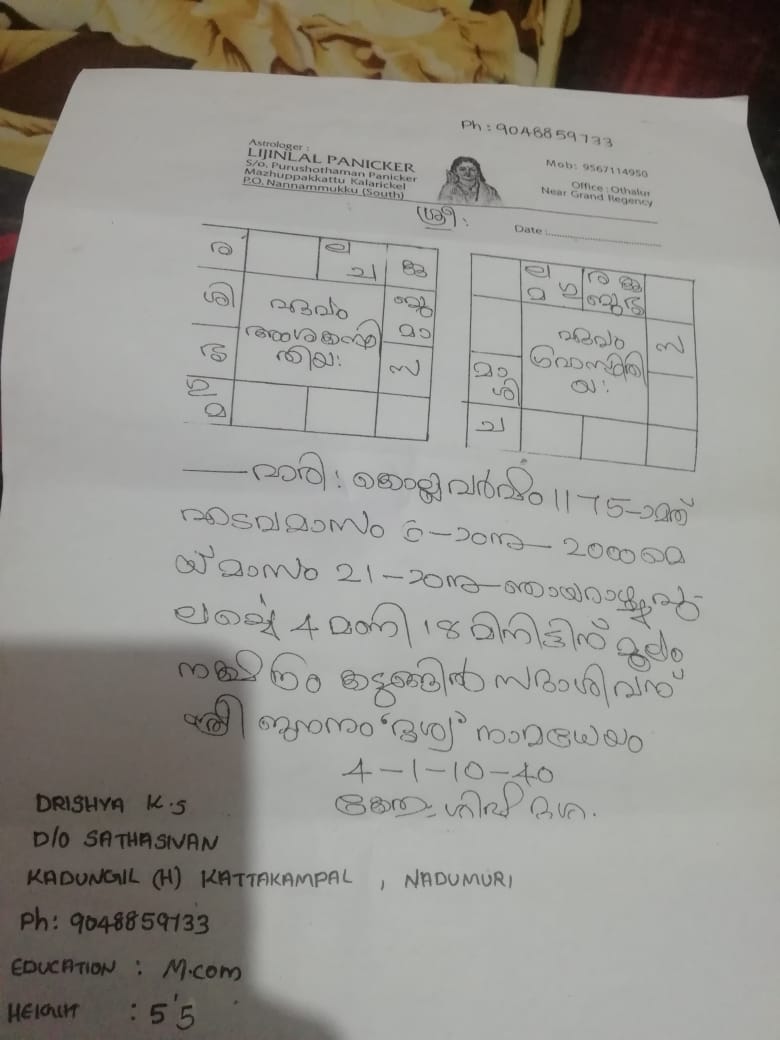 Ph : 9048859733
Astrologer :
LIJINLAL PANICKER
S/o. Purushothaman Panicker
Mazhuppakkattu Kalarickel
P.O. Nannammukku (South)
Mob: 9567114950
Office : Othalur
Near Grand Regency
ശ്രീ:
Date :
ര ല
ച
ശി
മാ
സ
മ
ഏവം
ല
മ
സ
മാ
ശി
ച
ഏവം
വാരി : കൊല്ലവർഷം 1175-ാമത്
എടവമാസം 6-ാംനു 2000 മെ
യ്മാസം 21-ാംനു ഞായറാഴ്ച പു-
ലർച്ചെ 4 മണി 18 മിനിട്ടിന് മൂലം
നക്ഷത്രം കടുങ്ങിൽ സദാശിവന്
സ്ത്രീ ജനനം 'ദൃശ്യ' നാമധേയം
4-1-10-40
കേതു: ശിഷ്ട ദശ.
DRISHYA K.S
D/O SATHASIVAN
KADUNGIL (H) KATTAKAMPAL , NADUMURI
Ph: 9048859733
EDUCATION : M.com
HEIGHT : 5'5